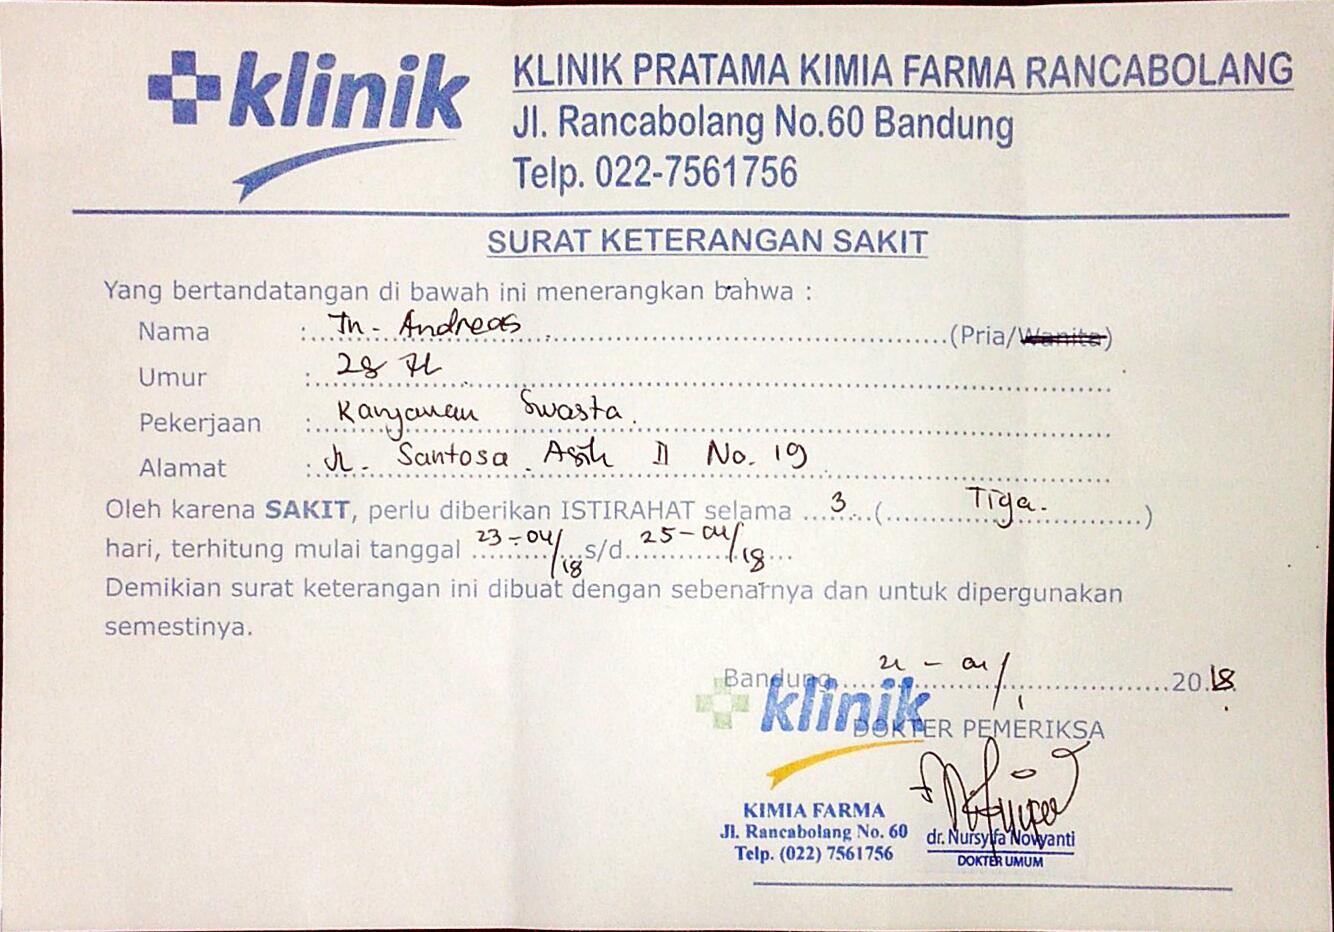 klinik
KLINIK PRATAMA KIMIA FARMA RANCABOLANG
Jl. Rancabolang No.60 Bandung
Telp. 022-7561756
SURAT KETERANGAN SAKIT
Yang bertandatangan di bawah ini menerangkan bahwa :
Nama : Tn. Andreas (Pria/Wanita)
Umur : 28 th
Pekerjaan : Karyawan Swasta.
Alamat : Jl. Santosa Asih II No. 19
Oleh karena SAKIT, perlu diberikan ISTIRAHAT selama 3 ( Tiga. )
hari, terhitung mulai tanggal 23-04/18 s/d 25-04/18
Demikian surat keterangan ini dibuat dengan sebenarnya dan untuk dipergunakan
semestinya.
Bandung, 2018
klinik
DOKTER PEMERIKSA
KIMIA FARMA
Jl. Rancabolang No. 60
Telp. (022) 7561756
dr. Nursyifa Novyanti
DOKTER UMUM